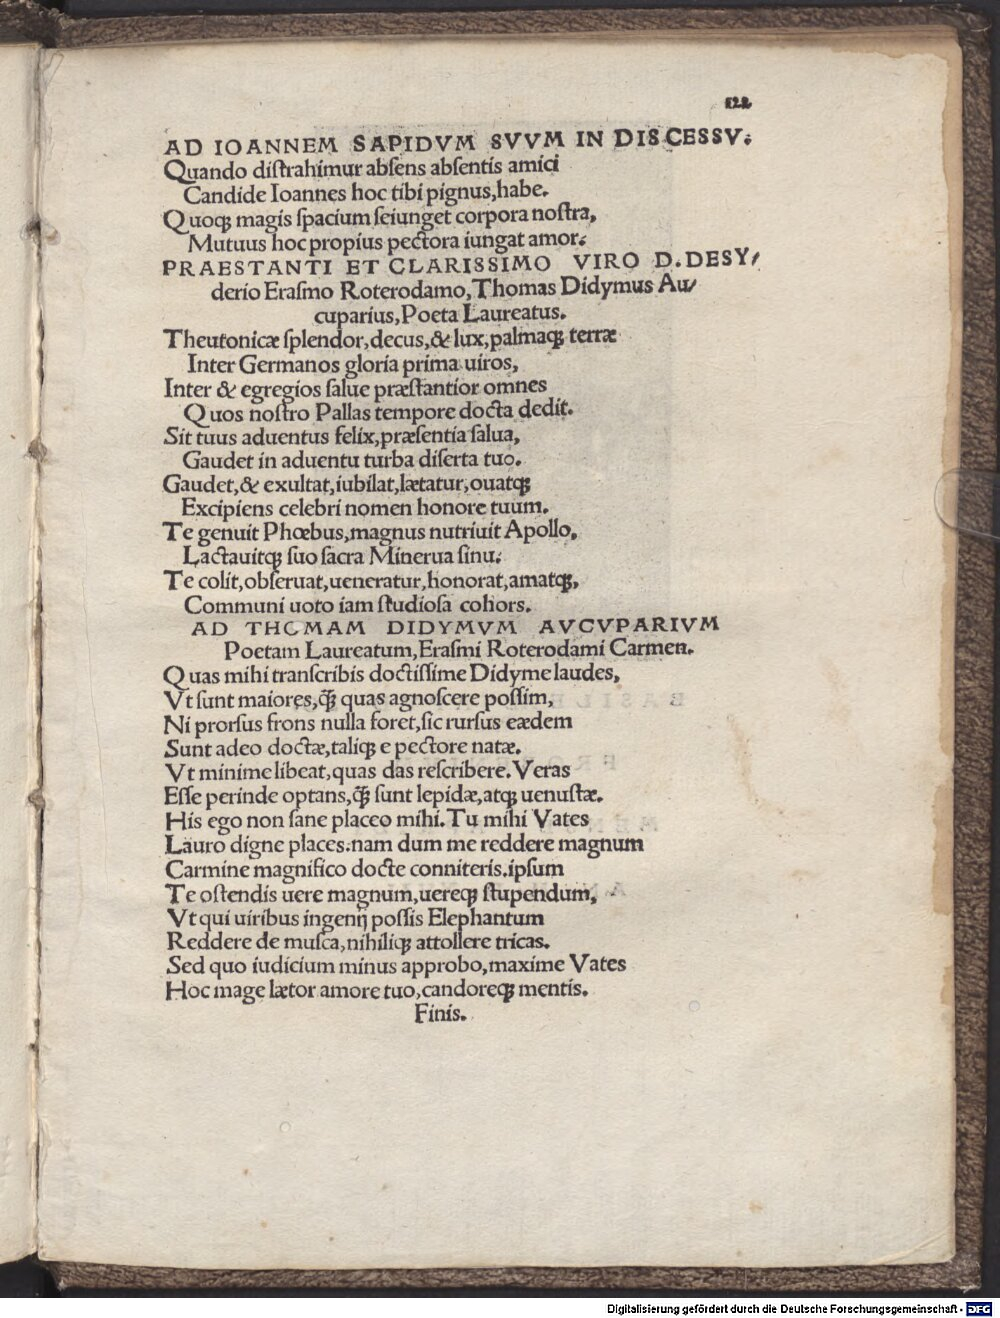 122
AD IOANNEM SAPIDVM SVVM IN DISCESSV.
Quando diſtrahimur abſens abſentis amici
Candide Ioannes hoc tibi pignus,habe.
Quoqꝫ magis ſpacium ſeiunget corpora noſtra,
Mutuus hoc propius pectora iungat amor.
PRAESTANTI ET CLARISSIMO VIRO D.DESY/
derio Eraſmo Roterodamo,Thomas Didymus Au/
cuparius,Poeta Laureatus.
Theutonicæ ſplendor,decus,& lux,palmaqꝫ terræ
Inter Germanos gloria prima uiros,
Inter & egregios ſalue præſtantior omnes
Quos noſtro Pallas tempore docta dedit.
Sit tuus aduentus felix,præſentia ſalua,
Gaudet in aduentu turba diſerta tuo.
Gaudet,& exultat,iubilat,lætatur,ouatqꝫ
Excipiens celebri nomen honore tuum.
Te genuit Phœbus,magnus nutriuit Apollo,
Lactauitqꝫ ſuo ſacra Minerua ſinu.
Te colit,obſeruat,ueneratur,honorat,amatqꝫ,
Communi uoto iam ſtudioſa cohors.
AD THOMAM DIDYMVM AVCVPARIVM
Poetam Laureatum,Eraſmi Roterodami Carmen.
Quas mihi tranſcribis doctiſſime Didyme laudes,
Vt ſunt maiores,ꝗ̃ꝫ quas agnoſcere poſſim,
Ni prorſus frons nulla foret,ſic rurſus eædem
Sunt adeo doctæ,taliqꝫ e pectore natæ.
Vt minime libeat,quas das reſcribere.Veras
Eſſe perinde optans,ꝗ̃ꝫ ſunt lepidæ,atqꝫ uenuſtæ.
His ego non ſane placeo mihi.Tu mihi Vates
Lauro digne places.nam dum me reddere magnum
Carmine magnifico docte conniteris.ipſum
Te oſtendis uere magnum,uereqꝫ ſtupendum,
Vt qui uiribus ingenij poſſis Elephantum
Reddere de muſca,nihiliqꝫ attollere tricas.
Sed quo iudicium minus approbo,maxime Vates
Hoc mage lætor amore tuo,candoreqꝫ mentis.
Finis.
Digitalisierung gefördert durch die Deutsche Forschungsgemeinschaft - DFG